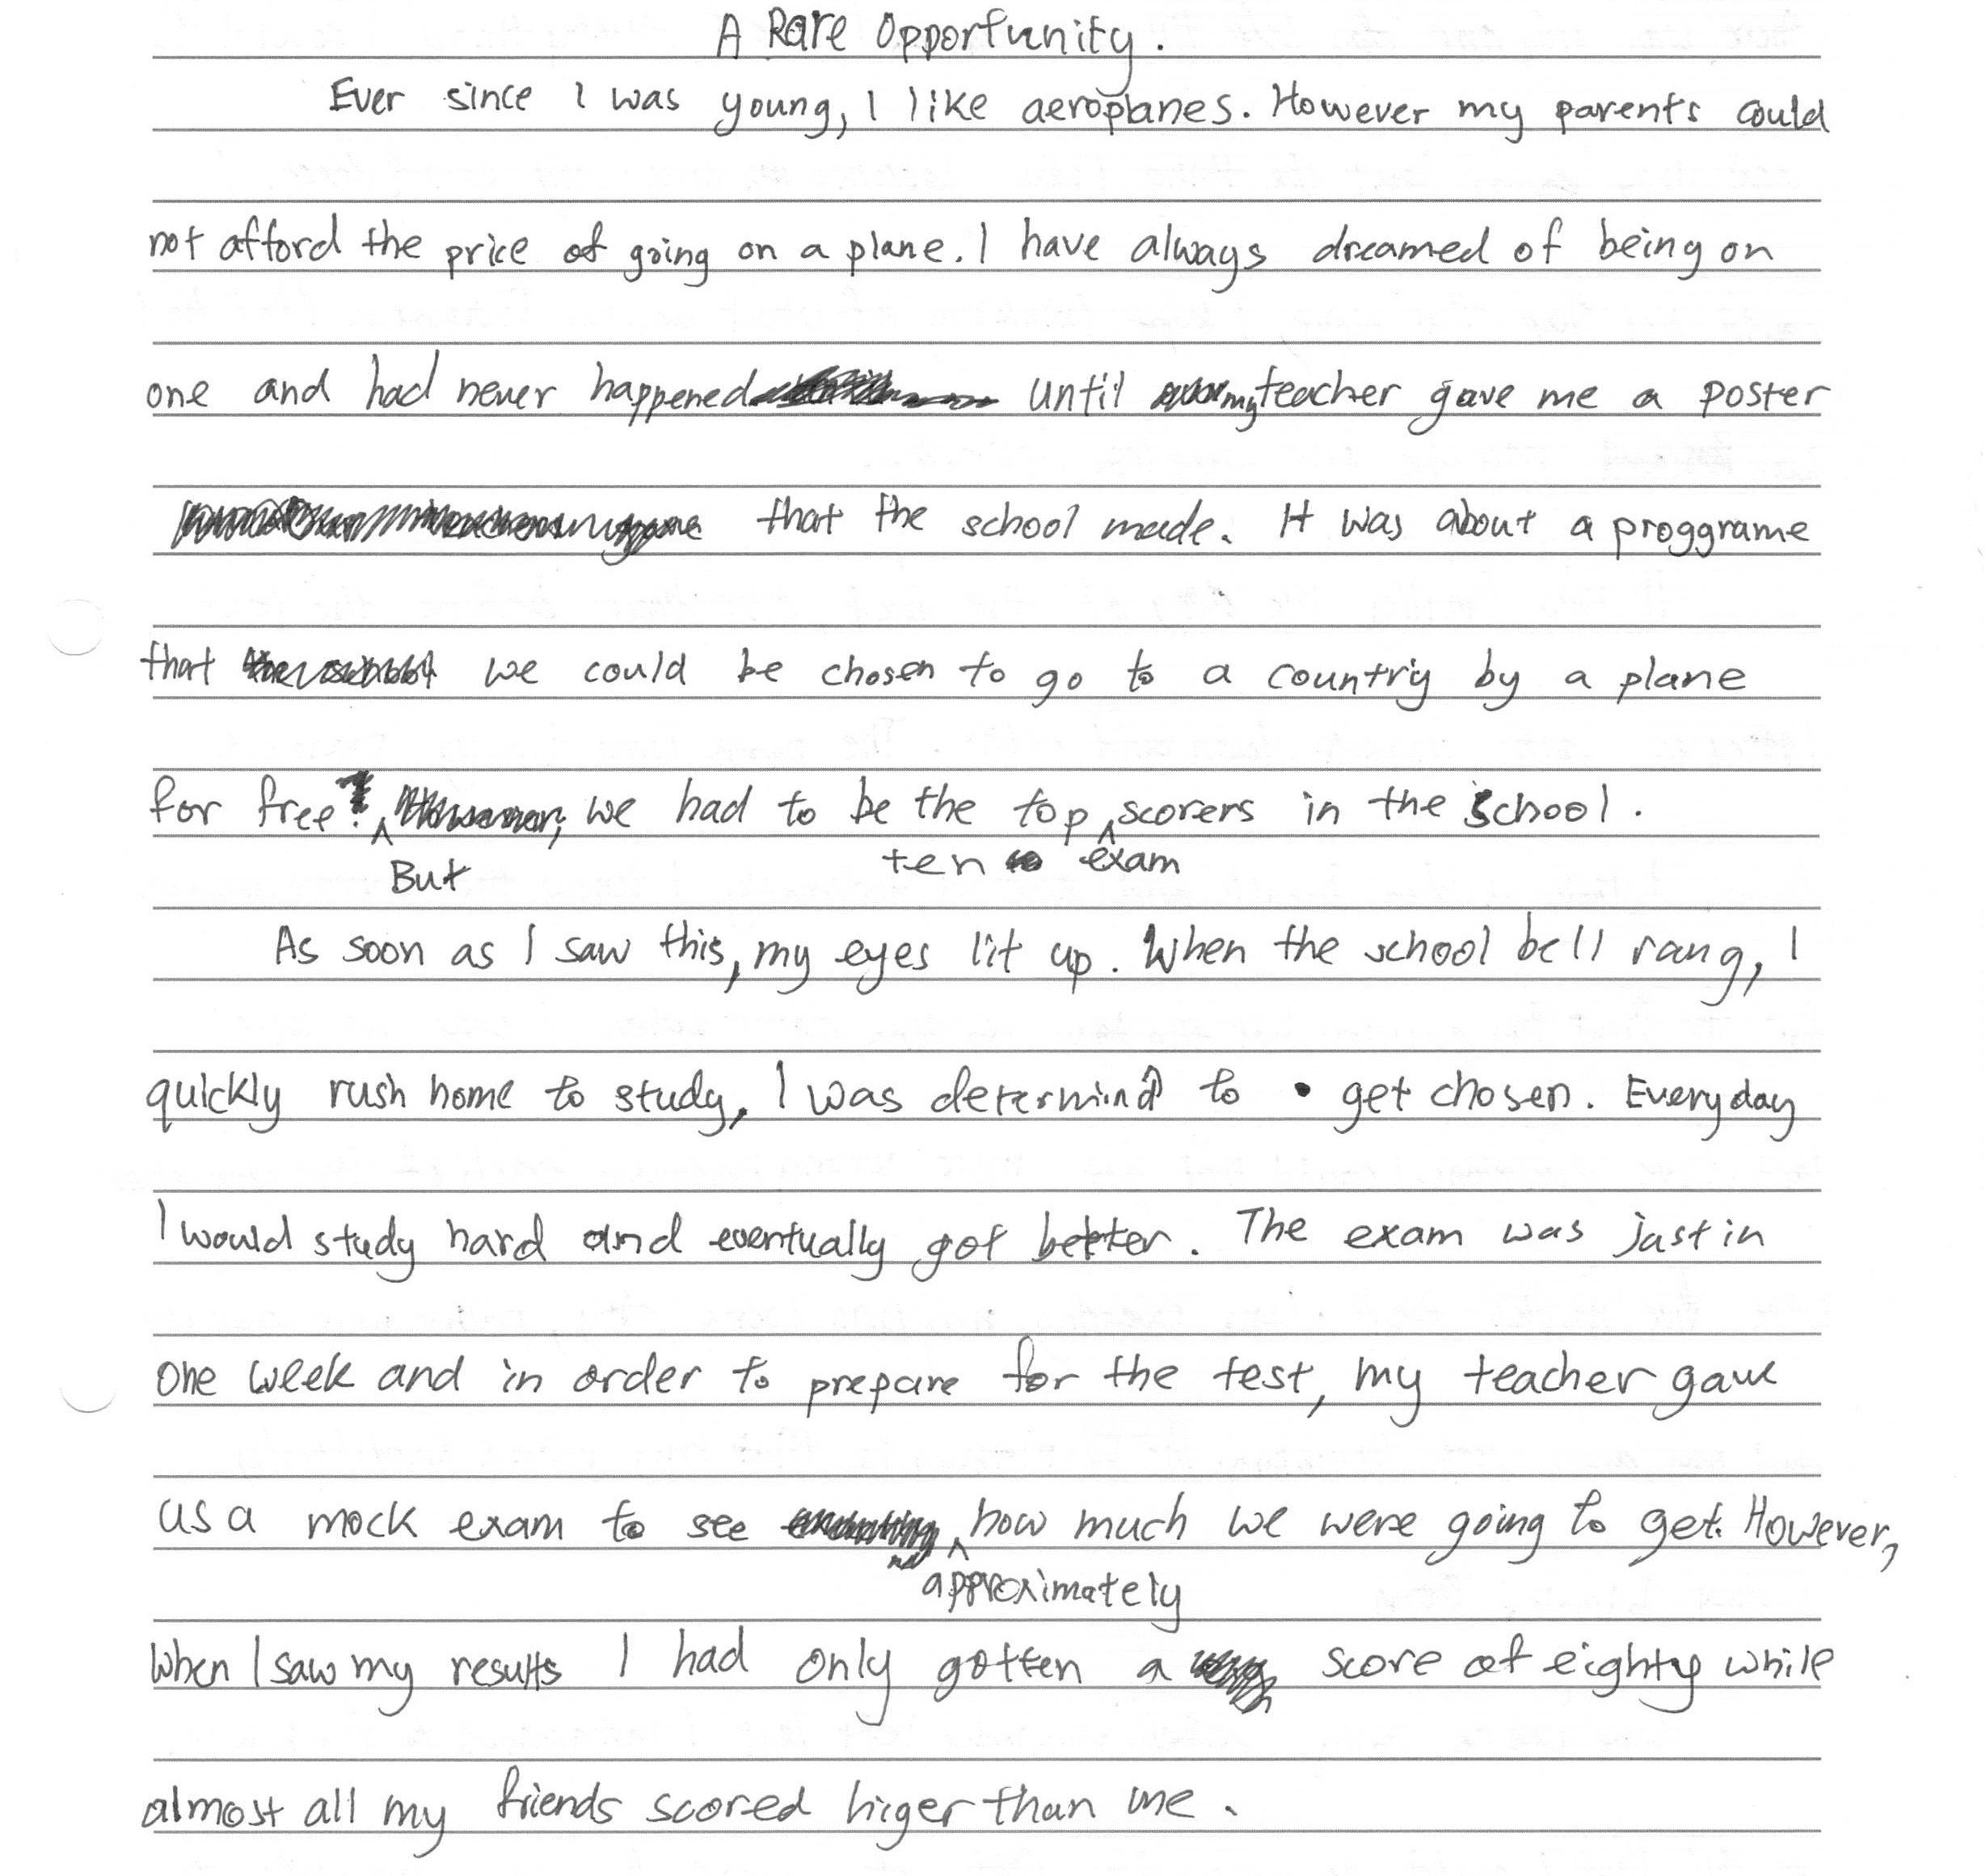 A Rare Opportunity.
Ever since I was young, I like aeroplanes. However my parents could
not afford the price of going on a plane. I have always dreamed of being on
one and had never happened until my teacher gave me a poster
that the school made. It was about a proggrame
that we could be chosen to go to a country by a plane
for free! But we had to be the top ten exam scorers in the school.
As soon as I saw this, my eyes lit up. When the school bell rang, I
quickly rush home to study. I was determind to get chosen. Everyday
I would study hard and eventually got better. The exam was just in
one week and in order to prepare for the test, my teacher gave
us a mock exam to see approximately how much we were going to get. However,
when I saw my results I had only gotten a score of eighty while
almost all my friends scored higer than me.